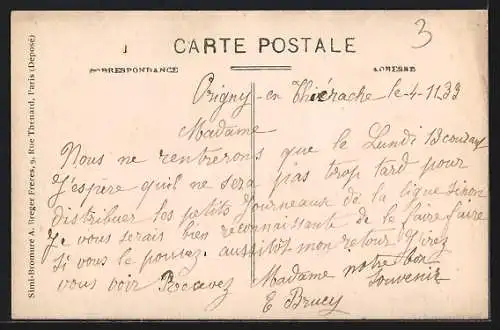 3
CARTE POSTALE
CORRESPONDANCE
ADRESSE
Simili-Bromure A. Breger Frères, 9, Rue Thénard, Paris (Déposé)
Origny-en Thiérache le-4-1133
Madame
Nous ne rentrerons que le Lundi 13 couray
J'espère qu'il ne sera pas trop tard pour
distribuer les petits Journeaux de la ligue sinon
Je vous serais bien reconnaissante de le faire faire
Si vous le pouviez. aussitot mon retour J'irez
vous voir Recevez Madame notre bon
Souvenir
E Brucy